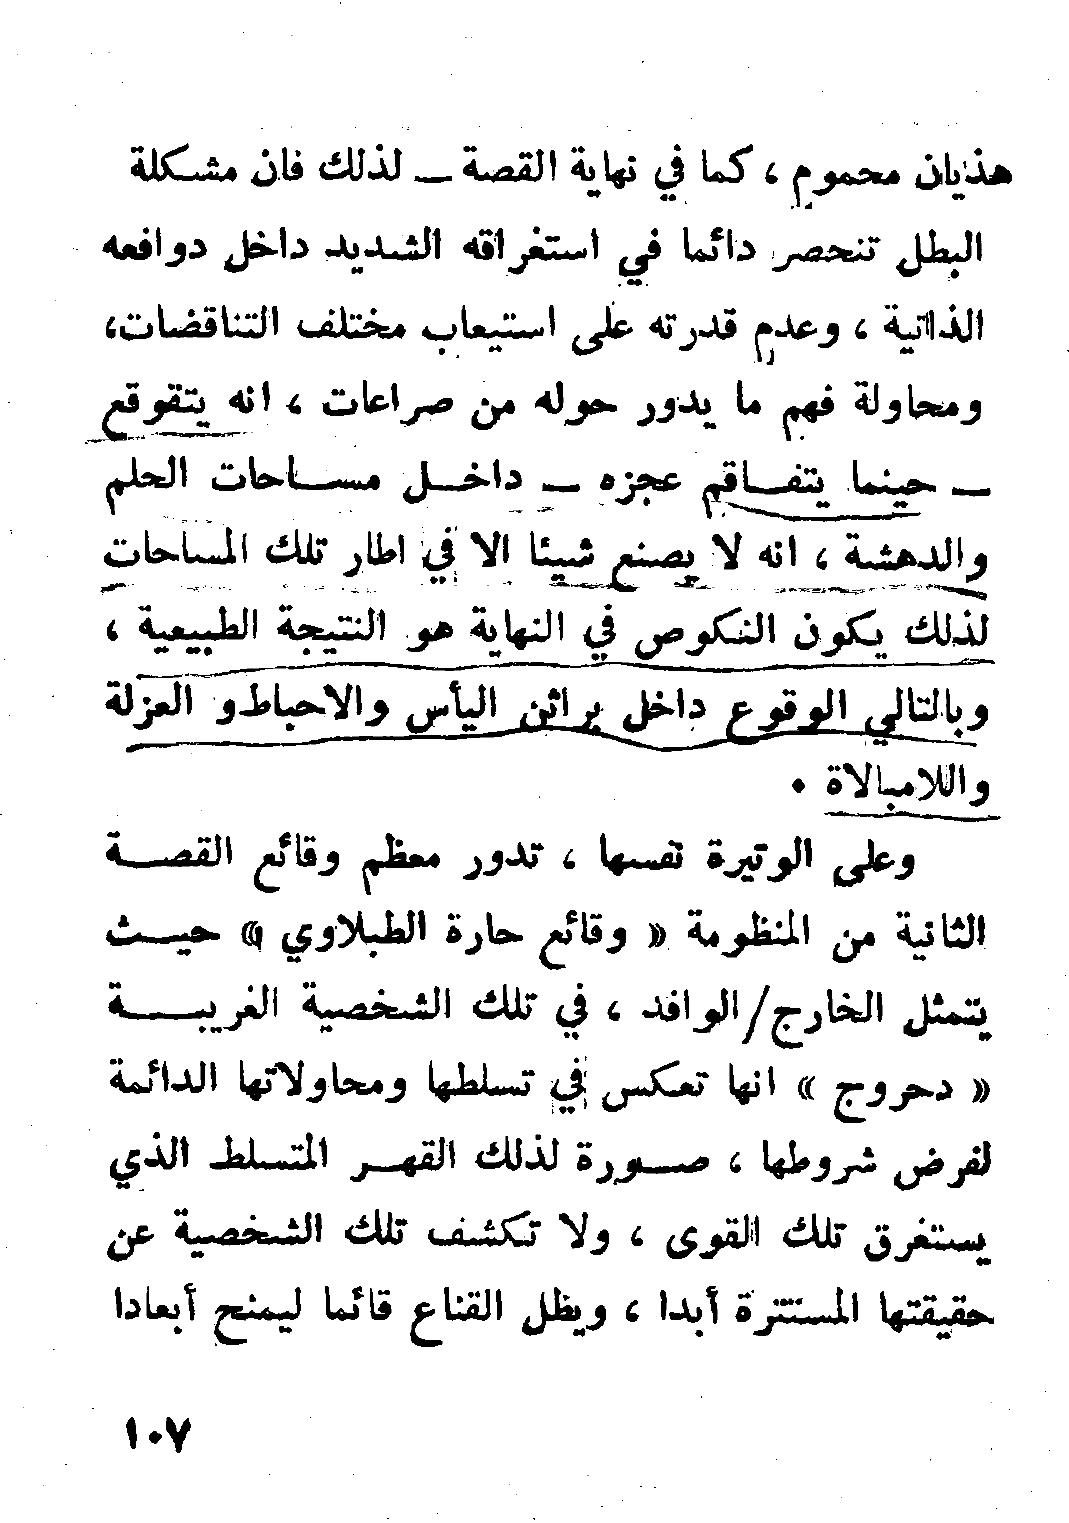 هذيان محموم ، كما في نهاية القصة — لذلك فان مشكلة
البطل تنحصر دائما في استغراقه الشديد داخل دوافعه
الذاتية ، وعدم قدرته على استيعاب مختلف التناقضات،
ومحاولة فهم ما يدور حوله من صراعات ، انه يتقوقع
— حينما يتفاقم عجزه — داخل مساحات الحلم
والدهشة ، انه لا يصنع شيئا الا في اطار تلك المساحات
لذلك يكون النكوص في النهاية هو النتيجة الطبيعية ،
وبالتالي الوقوع داخل براثن اليأس والاحباط و العزلة
واللامبالاة .
وعلى الوتيرة نفسها ، تدور معظم وقائع القصة
الثانية من المنظومة « وقائع حارة الطبلاوي » حيث
يتمثل الخارج/الوافد ، في تلك الشخصية الغريبة
« دحروج » انها تعكس في تسلطها ومحاولاتها الدائمة
لفرض شروطها ، صورة لذلك القهر المتسلط الذي
يستغرق تلك القوى ، ولا تكشف تلك الشخصية عن
حقيقتها المستترة أبدا ، ويظل القناع قائما ليمنح أبعادا
١٠٧